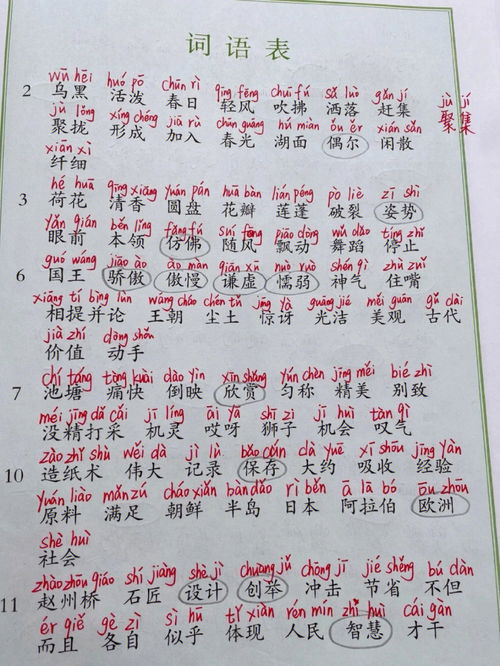 词语表
wū hēi huó pō chūn rì qīng fēng chuī fú sǎ luò gǎn jí jù jí
2 乌黑 活泼 春日 轻风 吹拂 洒落 赶集 聚集
jù lǒng xíng chéng jiā rù chūn guāng hú miàn ǒu ěr xián sǎn
聚拢 形成 加入 春光 湖面 偶尔 闲散
xiān xì
纤细
hé huā qīng xiāng yuán pán huā bàn lián péng pò liè zī shì
3 荷花 清香 圆盘 花瓣 莲蓬 破裂 姿势
yǎn qián běn lǐng fǎng fú suí fēng piāo dòng wǔ dǎo tíng zhǐ
眼前 本领 仿佛 随风 飘动 舞蹈 停止
guó wáng jiāo ào ào màn qiān xū nuò ruò shén qì zhù zuǐ
6 国王 骄傲 傲慢 谦虚 懦弱 神气 住嘴
xiāng tí bìng lùn wáng cháo chén tǔ jīng yà guāng jié měi guān gǔ dài
相提并论 王朝 尘土 惊讶 光洁 美观 古代
jià zhí dòng shǒu
价值 动手
chí táng tòng kuài dào yìn xīn shǎng yún chèn jīng měi bié zhì
7 池塘 痛快 倒映 欣赏 匀称 精美 别致
méi jīng dǎ cǎi jī líng āi yā shī zi jī huì tàn qì
没精打采 机灵 哎呀 狮子 机会 叹气
zào zhǐ shù wěi dà jì lù bǎo cún dà yuē xī shōu jīng yàn
10 造纸术 伟大 记录 保存 大约 吸收 经验
yuán liào mǎn zú cháo xiǎn bàn dǎo rì běn ā lā bó ōu zhōu
原料 满足 朝鲜 半岛 日本 阿拉伯 欧洲
shè huì
社会
zhào zhōu qiáo shí jiàng shè jì chuàng jǔ chōng jī jié shěng bú dàn
11 赵州桥 石匠 设计 创举 冲击 节省 不但
ér qiě gè zì sì hū tǐ xiàn rén mín zhì huì cái gàn
而且 各自 似乎 体现 人民 智慧 才干